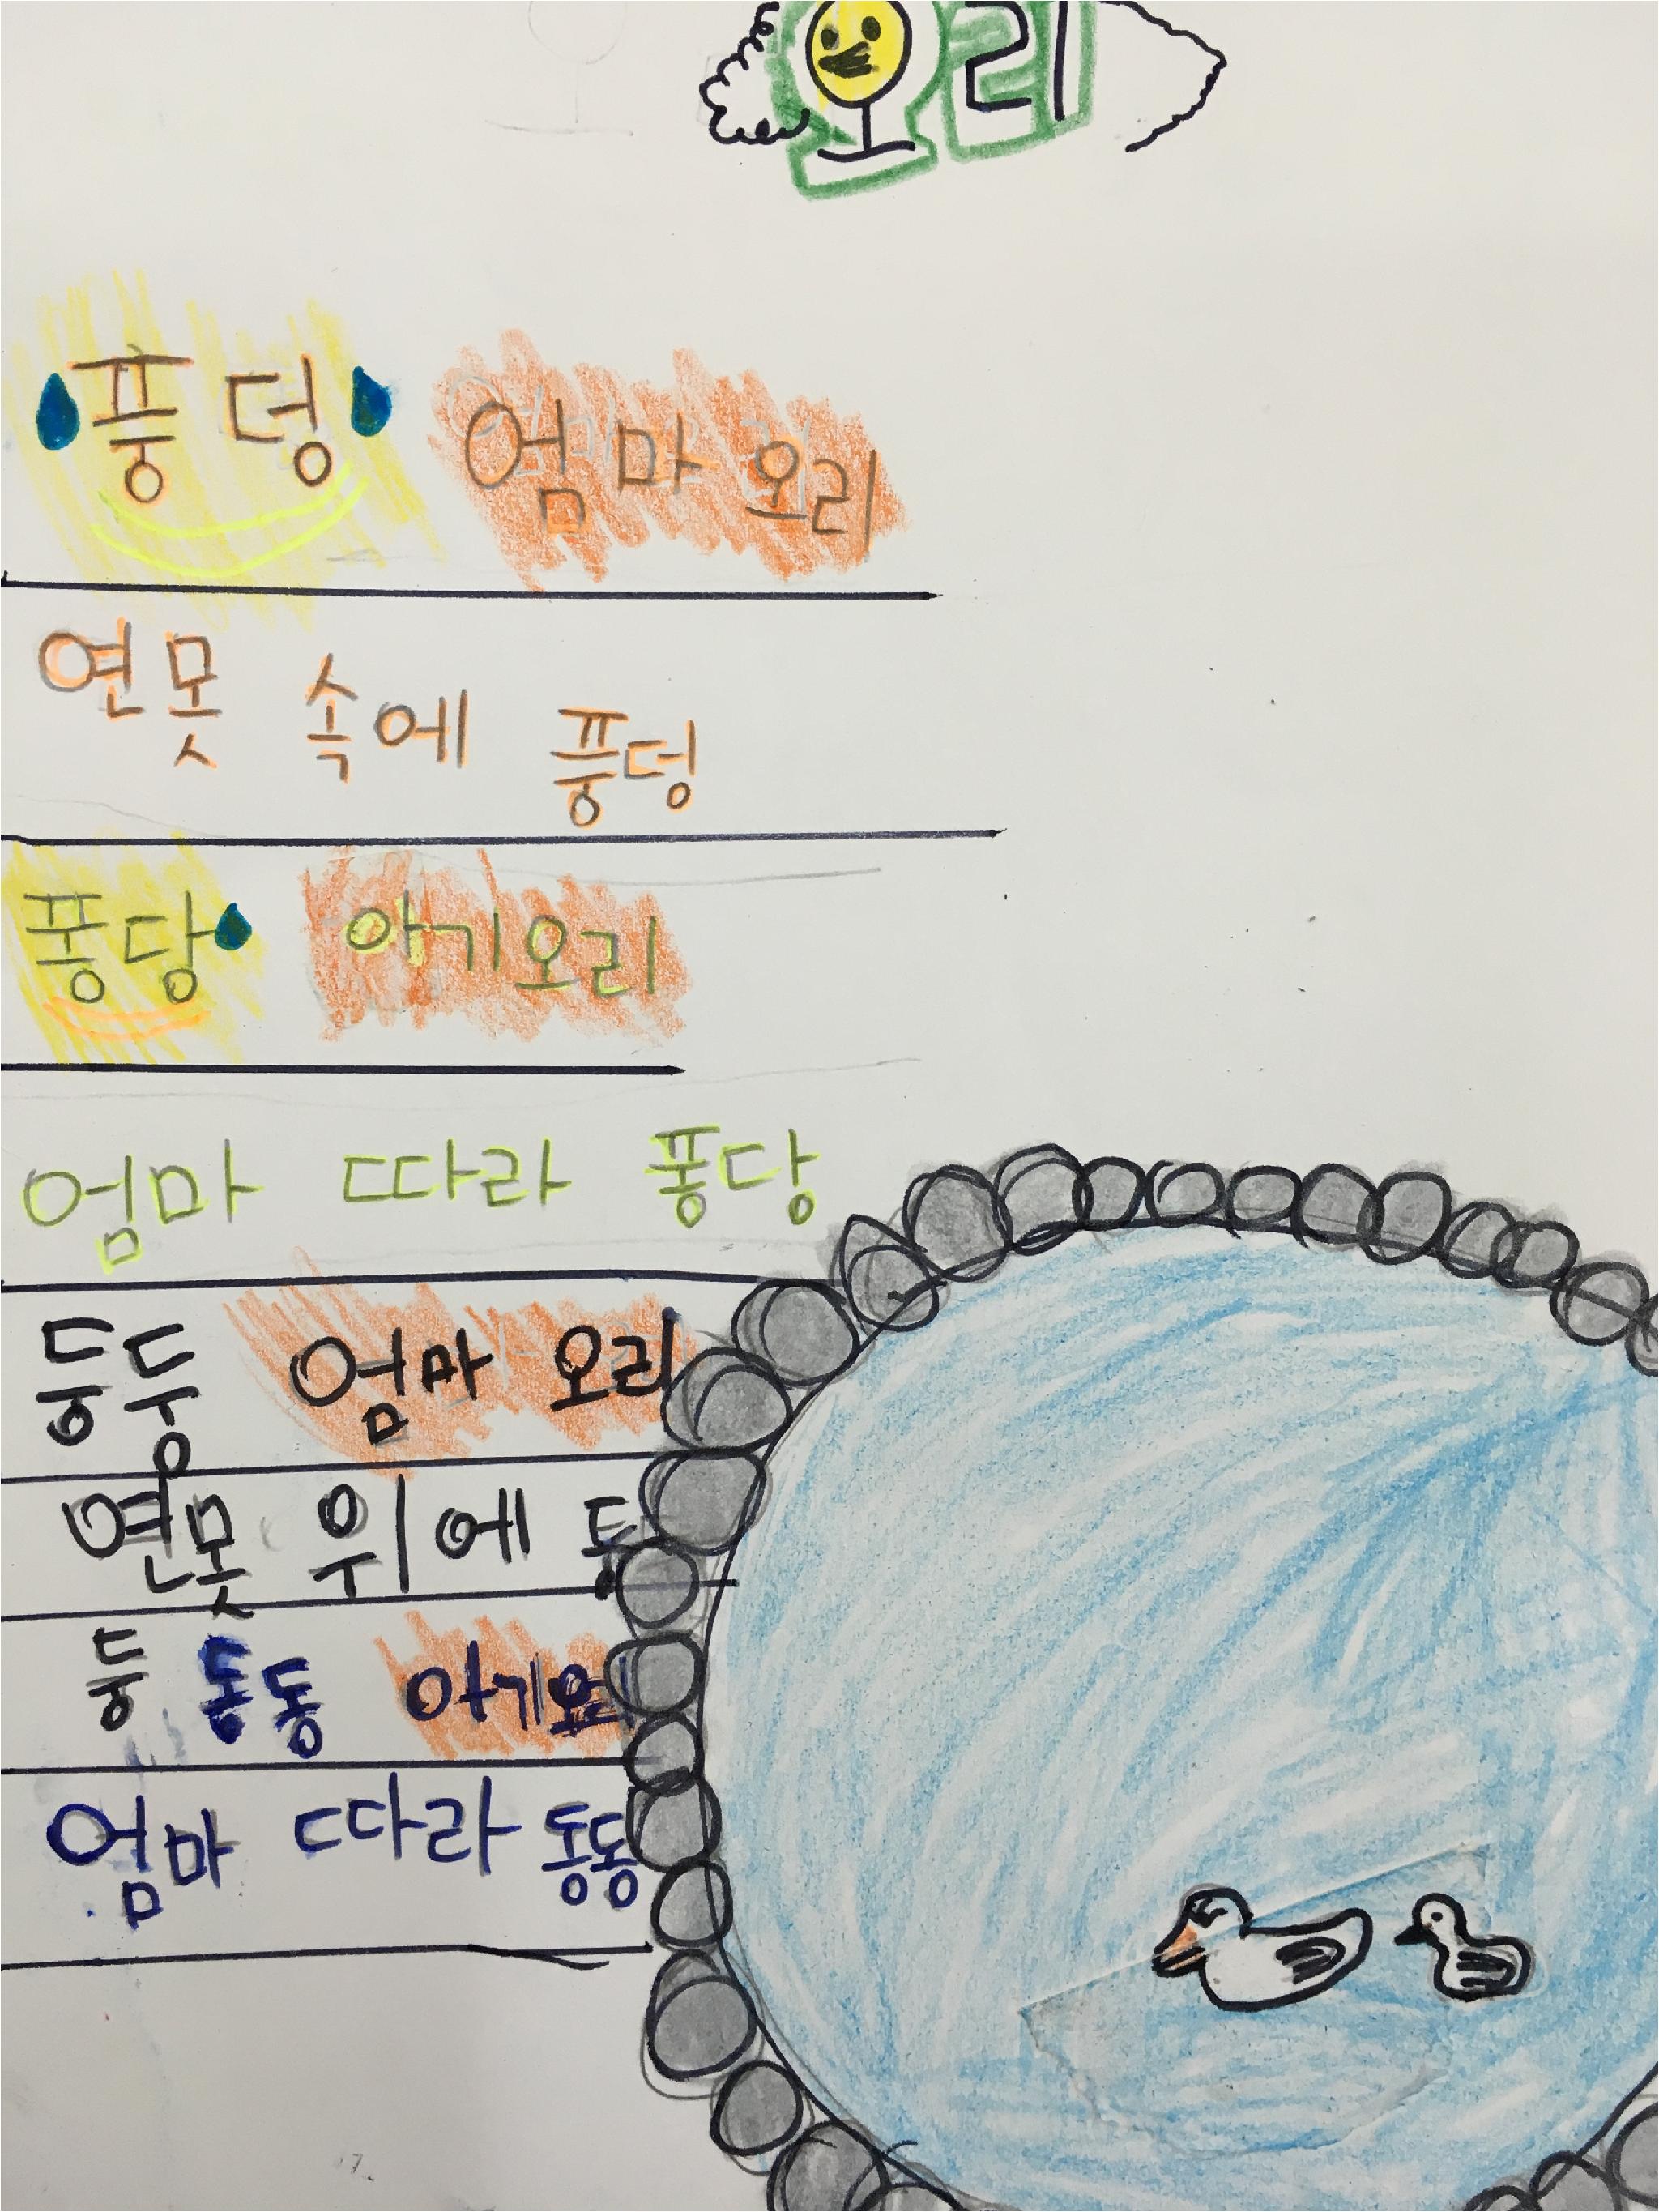 오리
풍덩 엄마 오리
연못 속에 풍덩
퐁당 아기오리
엄마 따라 퐁당
둥둥 엄마 오리
연못 위에 둥
둥 동동 아기오리
엄마 따라 동동